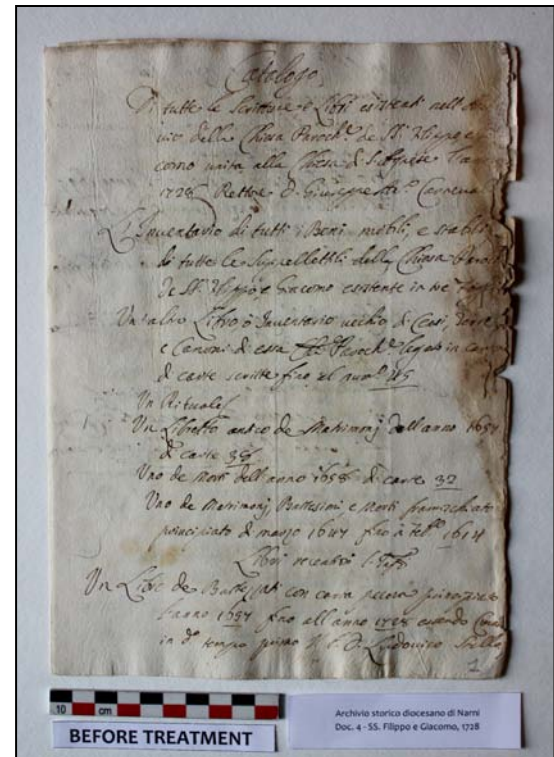 Catalogo
Di tutte le Scritture e Libri esistenti nell'
vio della Chiesa Paroch.e de SS. Filippo e
como unita alla Chiesa di S.
1728 Rettore D. Giuseppe Carneval
L'Inventario di tutti i Beni mobili, e stabili
di tutte le Suppellettili della Chiesa Paroch
de SS. Filippo, e Giacomo esistente in
Un'altro Libro ò Inventario vecchio di Censi,
e Canoni di essa Paroch.e legato in
di carte scritte fino al num.o 115
Un Rituale
Un Libretto antico de Matrimonj dell'anno 1657
di carte 36
Uno de Morti dell'anno 1658 di carte 32
Uno de Matrimonj Battesimi, e Morti framischiato
principiato di marzo fino à
Libri recentiori
Un Libro de Battezzati con carta pecora principia
l'anno 1657 fino all'anno 1728 essendo
in d.o tempo primo Ludovico
1
10 cm
BEFORE TREATMENT
Archivio storico diocesano di Narni
Doc. 4 - SS. Filippo e Giacomo, 1728